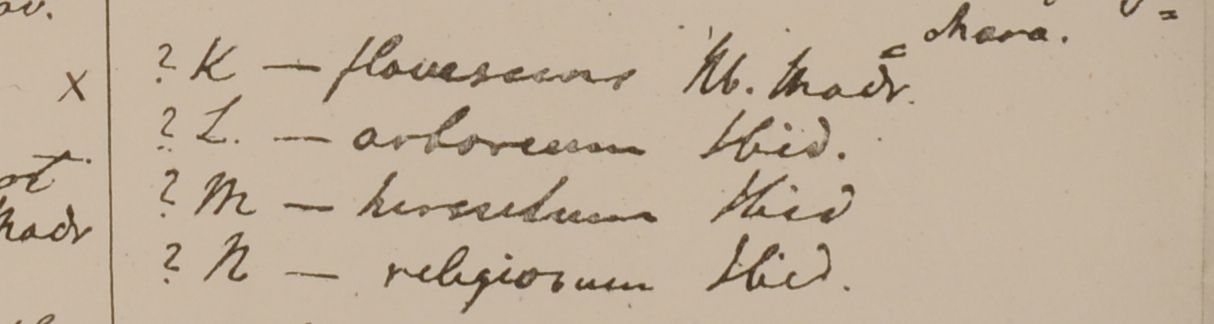 chara.
? K — flavescens Hb. Madr.
? L. — arboreum Ibid.
? M — hirsutum Ibid
? N — religiosum Ibid.
Madr